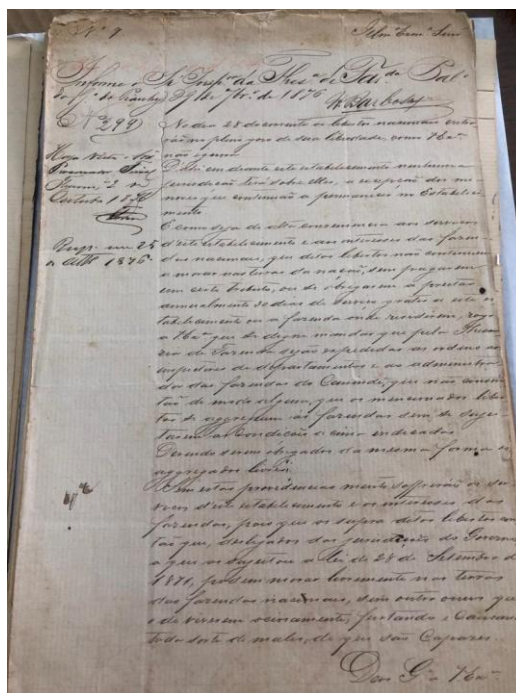 Nº 9
Illmº Exmº Senr
Informe o Sr. Inspor da Thesª de Fazª da Palº
do Gº do Piauhy 29 de 7brº de 1876
Nº 299
No dia 28 do corrente os libertos nacionaes entra-
rão no pleno goso de sua liberdade, como V. Exª
não ignora
D'ahi em diante este estabelecimento nenhuma
jurisdicção terá sobre elles, a excepção dos me-
nores que continuão a permanecer no Estabeleci-
mento
Haja Vista o Sr
Procurador Fiscal
Outubro 1876
E como seja de alta conveniencia aos serviços
d'este estabelecimento e aos interesses das fazen-
das nacionaes, que ditos libertos não continuem
Resp. em 25
1876
a morar nas terras da nação, sem pagarem
um certo tributo, ou se obrigarem a prestar
annualmente 30 dias de serviço gratis a este es-
tabelecimento ou a fazenda onde residirem, rogo
a V. Exª que se digne mandar que pela Thesou-
raria de Fazenda sejão expedidas as ordens ao
inspector do departamento e ao administra-
dor das fazendas do Canindé, que não consin-
tão de modo algum, que os mencionados liber-
tos se aggreguem ás fazendas sem se sujei-
tarem as condições acima indicadas
Devendo serem obrigados da mesma forma os
aggregados livres
Sem estas providencias muito soffrerão os ser-
viços d'este estabelecimento e os interesses das
fazendas, pois que os supra ditos libertos en-
tão que, desligados da jurisdicção do Governo
a que os sujeitou a lei de 28 de Setembro de
1871, podem morar livremente nas terras
das fazendas nacionaes, sem outro onus que
o de viverem ociosamente, furtando e causando
toda sorte de males, de que são capazes.
Deos Gª a V. Exª